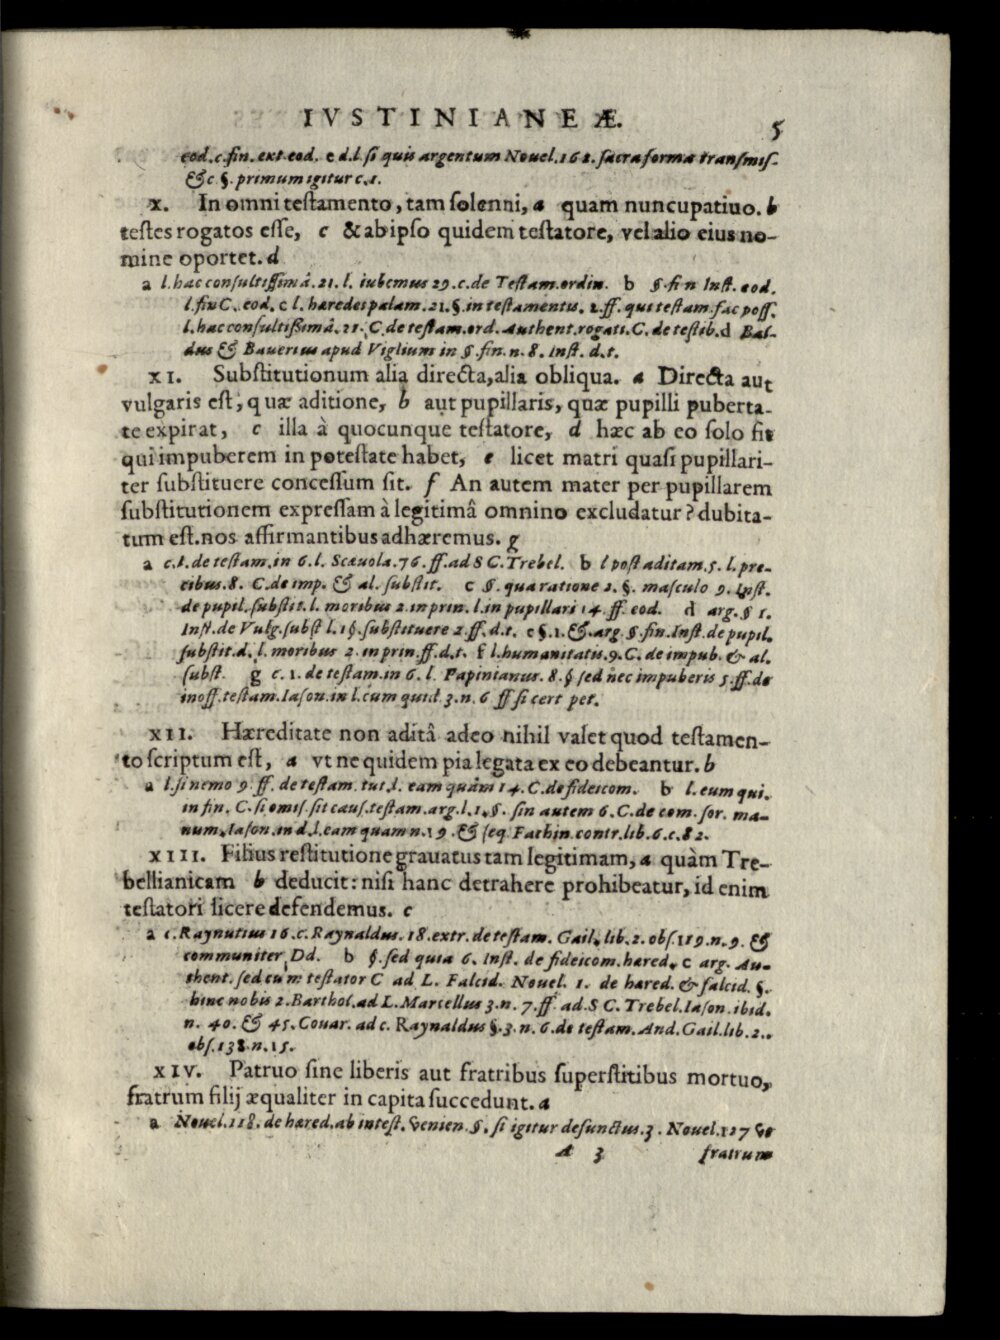 IVSTINIANEÆ. 5
eod. c. fin. ext. eod. e d. l. si quis argentum Nouel. 162. sacra forma transmis.
& c §. primum igitur c. 1.
X. In omni testamento, tam solenni, a quam nuncupatiuo. b
testes rogatos esse, c & ab ipso quidem testatore, vel alio eius no-
mine oportet. d
a l. hac consultissimâ. 21. l. iubemus 29. c. de Testam. ordin. b §. fin Inst. eod.
l. fin C. eod. c l. haredes palam. 21. §. in testamentis. 2. ff. qui testam. fac poss.
l. hac consultissimâ. 21. C. de testam. ord. Authent. rogati. C. de testib. d Bal-
dus & Bauerius apud Viglium in §. fin. n. 8. Inst. d. t.
XI. Substitutionum alia directa, alia obliqua. a Directa aut
vulgaris est, quæ aditione, b aut pupillaris, quæ pupilli puberta-
te expirat, c illa à quocunque testatore, d hæc ab eo solo fit
qui impuberem in potestate habet, e licet matri quasi pupillari-
ter substituere concessum sit. f An autem mater per pupillarem
substitutionem expressam à legitimâ omnino excludatur? dubita-
tum est. nos affirmantibus adhæremus. g
a c. 1. de testam. in 6. l. Scæuola. 76. ff. ad S C. Trebel. b l post aditam. 5. l. pre-
cibus. 8. C. de imp. & al. substit. c §. qua ratione 2. §. masculo 9. Inst.
de pupil. substit. l. moribus 2. in prin. l. in pupillari 14. ff. eod. d arg. § 1.
Inst. de Vulg. subst l. 1 §. substituere 2 ff. d. t. e §. 1. & arg §. fin. Inst. de pupil.
substit. d. l. moribus 2. in prin. ff. d. t. f l. humanitatis. 9. C. de impub. & al.
subst. g c. 1. de testam. in 6. l. Papinianus. 8. § sed nec impuberis 5. ff. de
inoff. testam. Iason. in l. cum quid 3. n. 6 ff si cert pet.
XII. Hæreditate non aditâ adeo nihil valet quod testamen-
to scriptum est, a vt ne quidem pia legata ex eo debeantur. b
a l. si nemo 9. ff. de testam. tut. l. eam quàm 14. C. de fideicom. b l. eum qui.
in fin. C. si omis. sit caus. testam. arg. l. 1. §. sin autem 6. C. de com. ser. ma-
num. Iason. in d. l. eam quam n. 19 & seq. Fachin. contr. lib. 6. c. 82.
XIII. Filius restitutione grauatus tam legitimam, a quàm Tre-
bellianicam b deducit: nisi hanc detrahere prohibeatur, id enim
testatori licere defendemus. c
a c. Raynutius 16. c. Raynaldus. 18. extr. de testam. Gail. lib. 2. obs. 119. n. 9. &
communiter Dd. b §. sed quia 6. Inst. de fideicom. hared. c arg. Au-
thent. sed cum testator C ad L. Falcid. Nouel. 1. de hared. & falcid. §.
hinc nobis 2. Barthol. ad L. Marcellus 3. n. 7. ff. ad S C. Trebel. Iason. ibid.
n. 40. & 45. Couar. ad c. Raynaldus §. 3. n. 6. de testam. And. Gail. lib. 2.
obs. 138. n. 15.
XIV. Patruo sine liberis aut fratribus superstitibus mortuo,
fratrum filij æqualiter in capita succedunt. a
a Nouel. 118. de hared. ab intest. venien. §. si igitur defunctus. 3. Nouel. 127 vt
A 3 fratrum